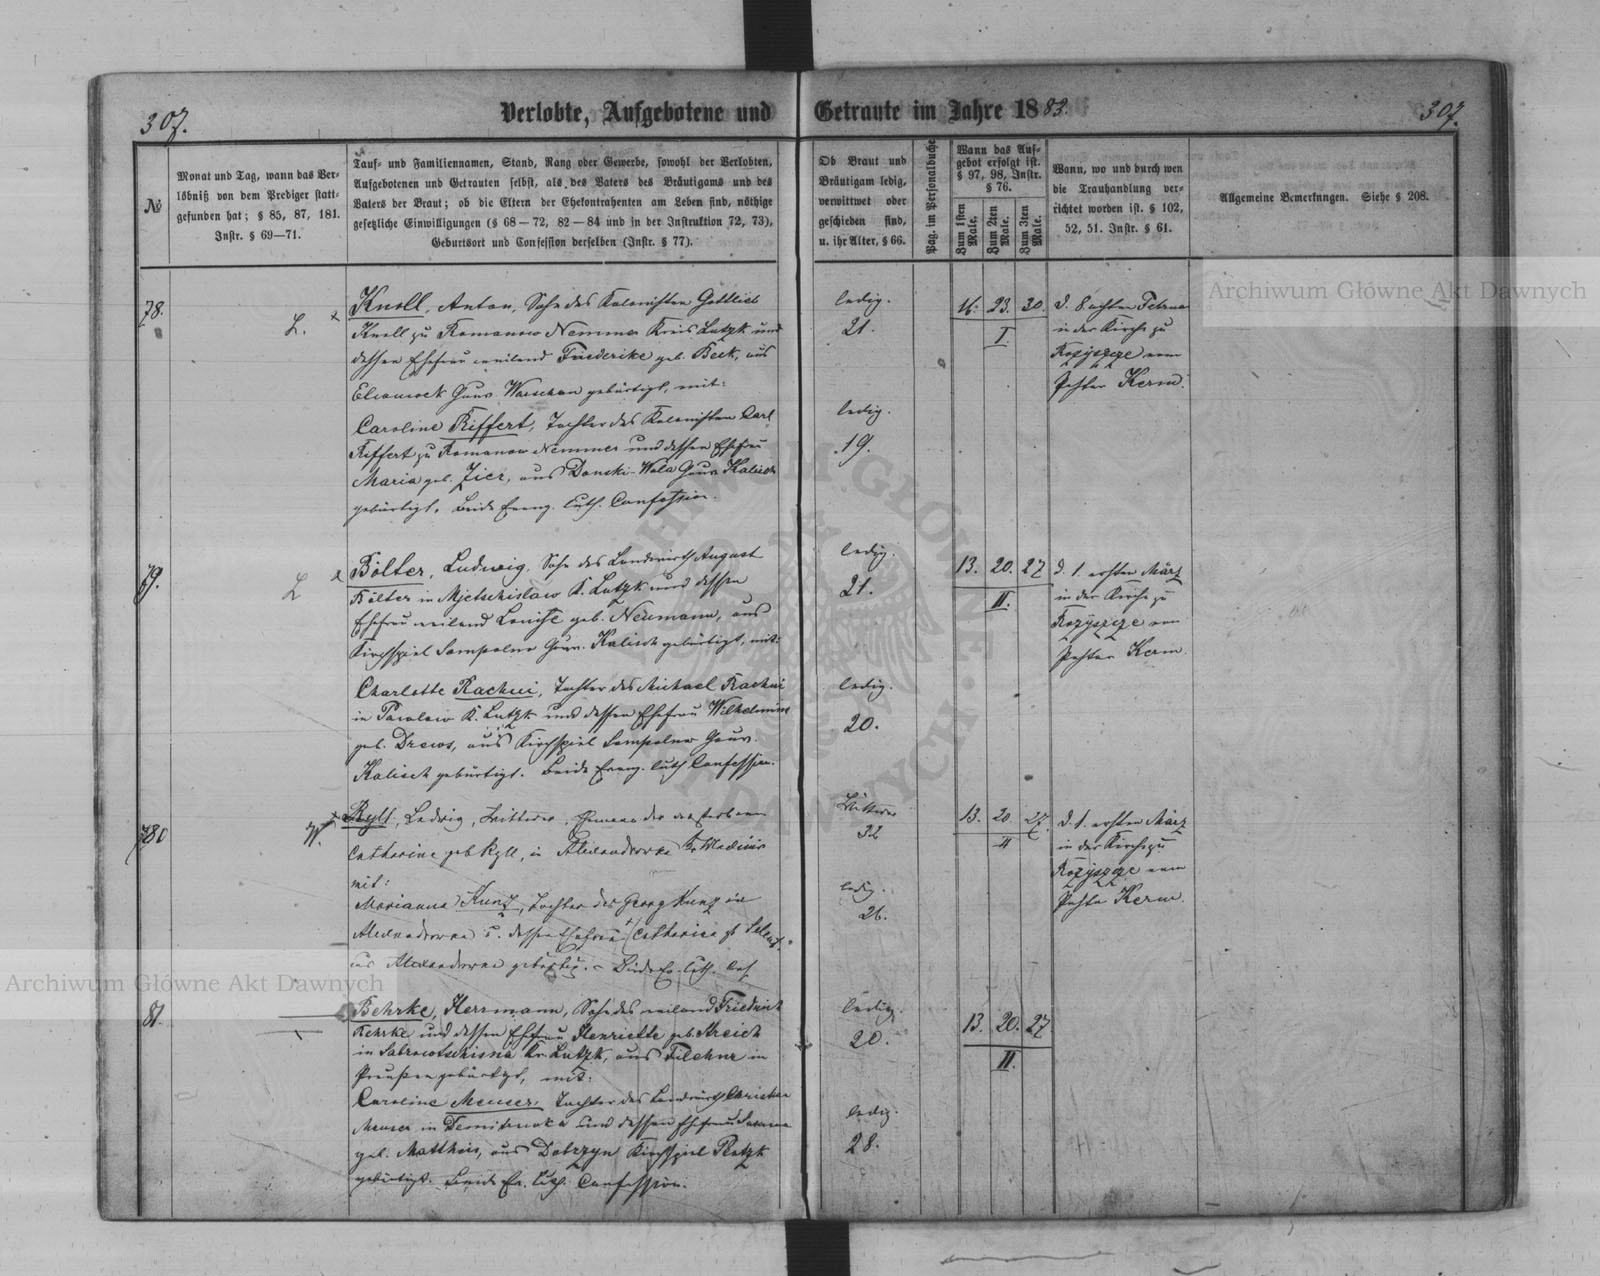 307.
Verlobte, Aufgebotene und Getraute im Jahre 1883.
307.
№
Monat und Tag, wann das Ver-
löbniß von dem Prediger statt-
gefunden hat; § 85, 87, 181.
Instr. § 69—71.
Tauf- und Familiennamen, Stand, Rang oder Gewerbe, sowohl der Verlobten,
Aufgebotenen und Getrauten selbst, als des Vaters des Bräutigams und des
Vaters der Braut; ob die Eltern der Ehekontrahenten am Leben sind, nöthige
gesetzliche Einwilligungen (§ 68—72, 82—84 und in der Instruktion 72, 73),
Geburtsort und Confession derselben (Instr. § 77).
Ob Braut und
Bräutigam ledig,
verwittwet oder
geschieden sind,
u. ihr Alter, § 66.
Pag. im Personalbuche
Wann das Auf-
gebot erfolgt ist.
§ 97, 98, Instr.
§ 76.
Zum 1sten Male.
Zum 2ten Male.
Zum 3ten Male.
Wann, wo und durch wen
die Trauhandlung ver-
richtet worden ist. § 102,
52, 51. Instr. § 61.
Allgemeine Bemerkungen. Siehe § 208.
78.
L.
Knoll, Anton, Sohn des Kolonisten Gottlieb
Knoll zu Romanow Nemmer Kreis Lutzk und
dessen Ehefrau weiland Friederike geb. Beck, aus
Gouv. Warschau gebürtigt, mit:
Caroline Riffert, Tochter des Kolonisten Carl
Riffert zu Romanow Nemmer und dessen Ehefrau
Maria geb. Zier, aus Donski-Wola Gouv. Kalisch
gebürtigt. Beide Evang. Luth. Confession.
ledig.
21.
ledig.
19.
16. 23. 30.
I.
d. 8 achten Februar
in der Kirche zu
Rozyszcze vom
Pastor Kerm.
79.
L
Bölter, Ludwig, Sohn des Landwirth August
Bölter in Mjetschislaw K. Lutzk und dessen
Ehefrau weiland Louise geb. Neumann, aus
Kirchspiel Sompolno Gouv. Kalisch gebürtigt, mit:
Charlotte Rachui, Tochter des Michael Rachui
in K. Lutzk und dessen Ehefrau Wilhelmine
geb. Drews, aus Kirchspiel Sompolno Gouv.
Kalisch gebürtigt. Beide Evang. Luth Confession.
ledig.
21.
ledig.
20.
13. 20. 27
II.
d. 1. ersten März
in der Kirche zu
Rozyszcze vom
Pastor Kerm.
780
W.
Ryll, Ludwig, Wittwer, der verstorbenen
Catharine geb Ryll, in Alexandrowka Kr Wladimir
mit:
Marianna Kunz, Tochter des Georg Kunz in
Alexandrowka u. dessen Ehefrau Catharina
aus Alexandrowka gebürtig. – Beide Ev. Luth. Conf
Wittwer
32
ledig.
26.
13. 20. 27.
II
d. 1. ersten März
in der Kirche zu
Rozyszcze vom
Pastor Kerm.
81.
Behrke, Herrmann, Sohn des weiland Friedrich
Behrke und dessen Ehefrau Henriette geb Streich
in Kr. Lutzk, aus Filehne in
Preußen gebürtigt, mit:
Caroline Meuser, Tochter des Landwirth Christian
Meuser in und dessen Ehefrau
geb. Mattheis, aus Dobrzyn Kirchspiel Plotzk
gebürtigt. Beide Ev. Luth. Confession.
ledig.
20.
ledig.
28.
13. 20. 27
II.
Archiwum Główne Akt Dawnych
Archiwum Główne Akt Dawnych